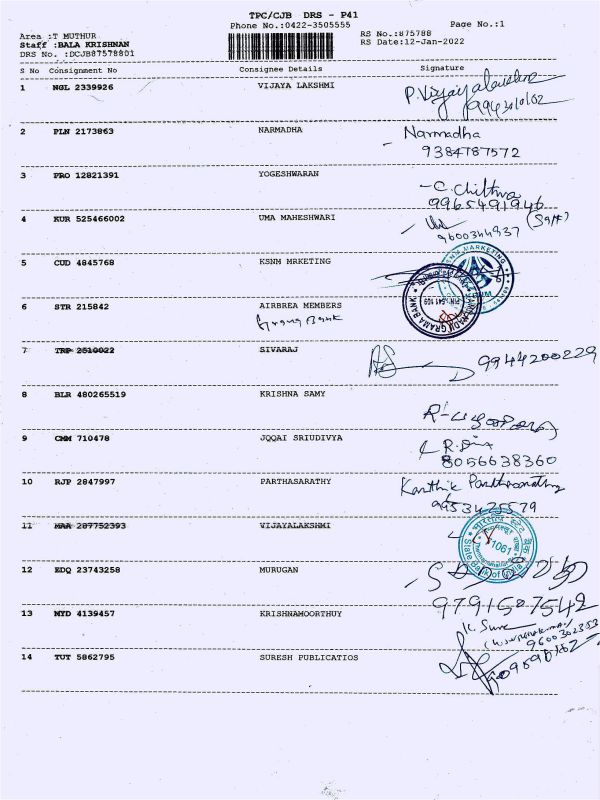 TPC/CJB DRS - P41
Phone No.:0422-3505555
Page No.:1
Area :T MUTHUR
Staff :BALA KRISHNAN
DRS No. :DCJB87578801
RS No.:875788
RS Date:12-Jan-2022
S No Consignment No Consignee Details Signature
1 NGL 2339926 VIJAYA LAKSHMI
2 PLN 2173863 NARMADHA Narmadha
9384787572
3 PRO 12821391 YOGESHWARAN C. Chithra
9965491946
4 KUR 525466002 UMA MAHESHWARI
9600344937
5 CUD 4845768 KSNM MRKETING
KSNM MARKETING
6 STR 215842 AIRBREA MEMBERS
Bank
GRAMA BANK
7 TRP 2510022 SIVARAJ 9944200229
8 BLR 480265519 KRISHNA SAMY
9 CMM 710478 JQQAI SRIUDIVYA
8056638360
10 RJP 2847997 PARTHASARATHY Karthik Parthasarathy
11 MAA 287752393 VIJAYALAKSHMI
State Bank of India
12 EDQ 23743258 MURUGAN
9791507542
13 MYD 4139457 KRISHNAMOORTHUY
14 TUT 5862795 SURESH PUBLICATIOS